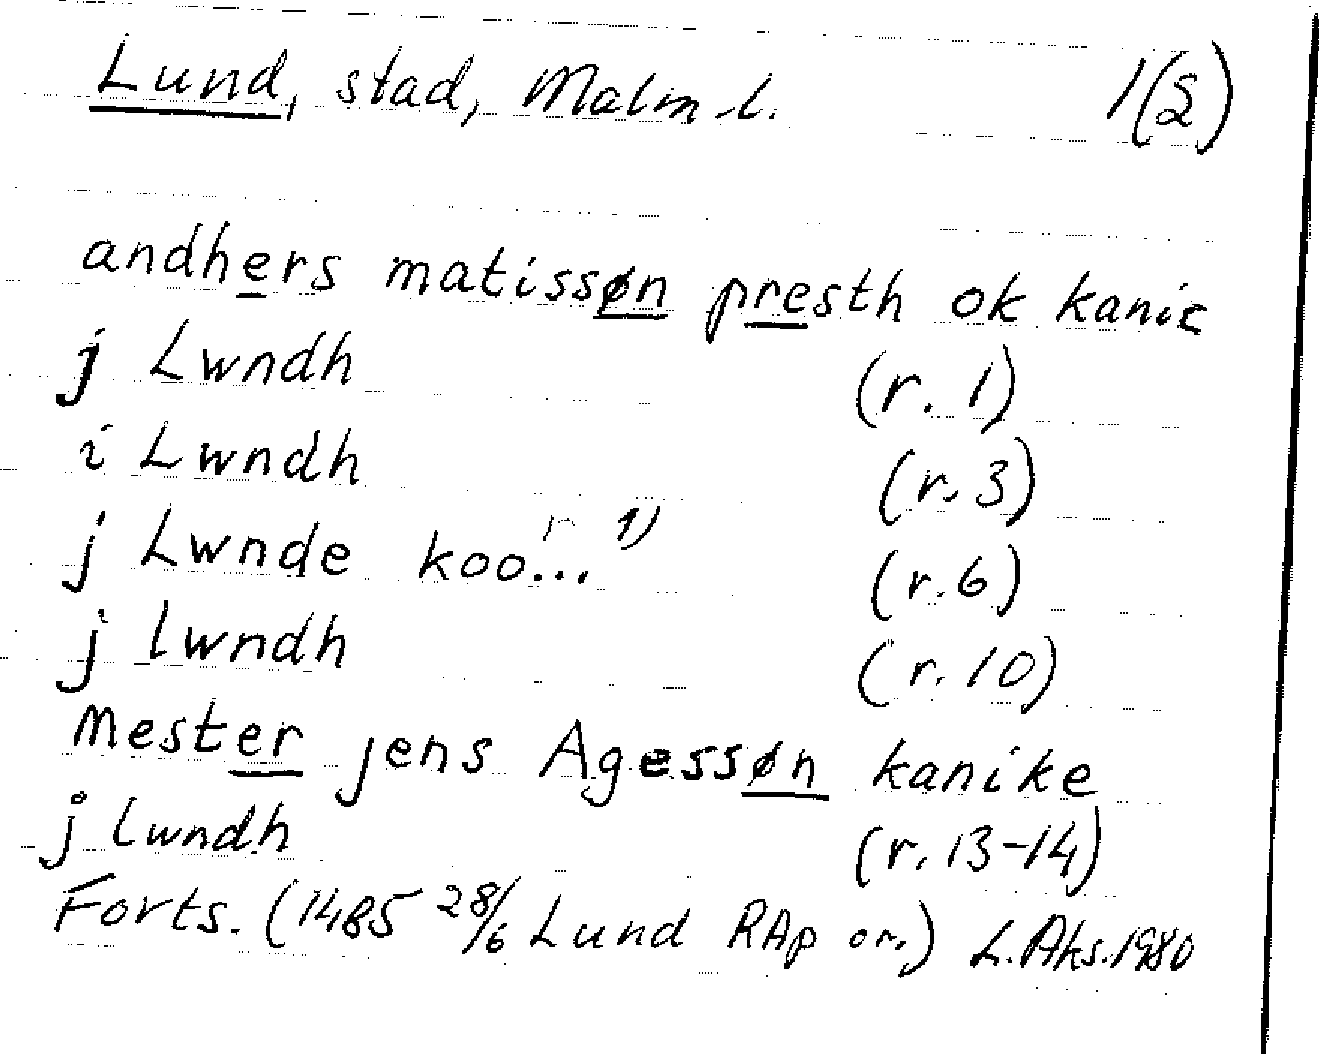 Lund, stad, Malm. l. 1(2)
andhers matissøn presth ok kanic
j Lwndh (r. 1)
i Lwndh (r. 3)
j Lwnde koo... 1) (r. 6)
j lwndh (r. 10)
Mester jens Agessøn kanike
j lwndh (r. 13-14)
Forts. (1485 28/6 Lund RAp or.) L. Aks. 1980